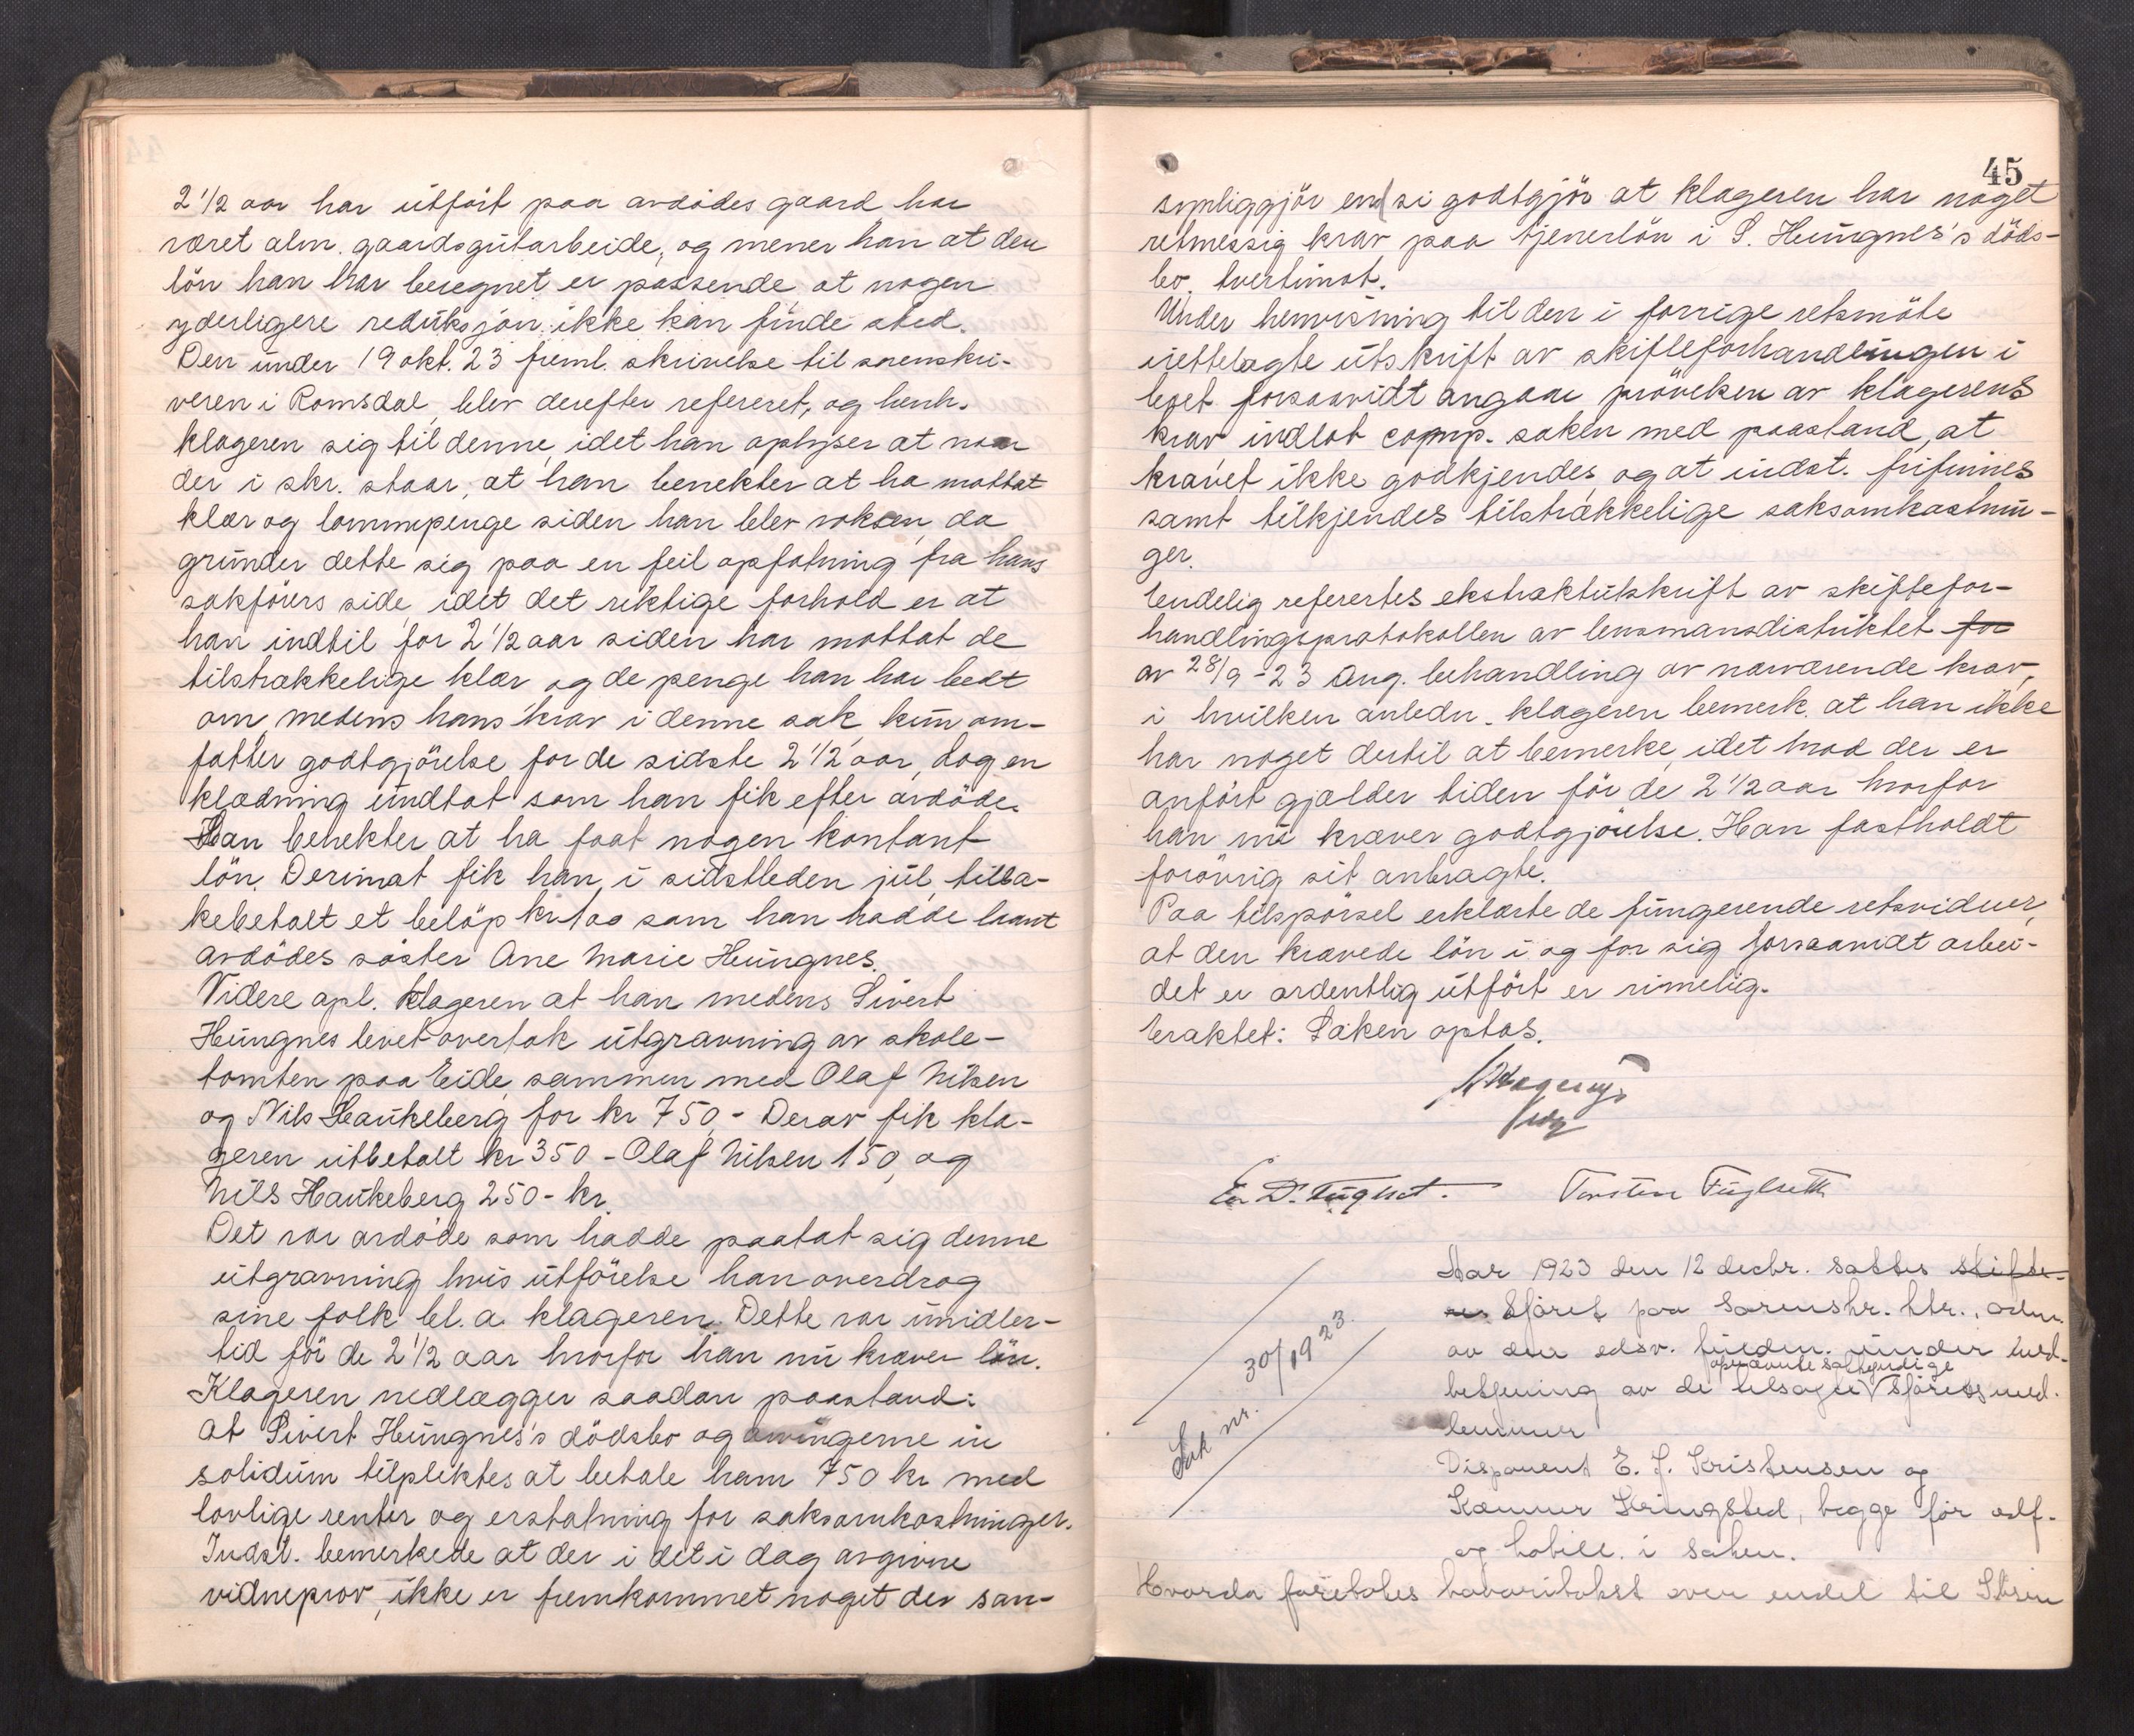 2 1/2 aar har utført paa avdødes gaard har
været alm. gaardsgutarbeide, og mener han at den
løn han har beregnet er passende at nogen
yderligere reduksjon ikke kan finde sted.
Den under 19 okt. 23 freml. skrivelse til sorenskri-
veren i Romsdal blev derefter refereret, og henh.
klageren sig til denne idet han oplyser at naar
der i skr. staar, at han benekter at ha mottat
klær og lommepenge siden han blev voksen, da
grunder dette sig paa en feil opfatning fra hans
sakførers side idet det riktige forhold er at
han indtil for 2 1/2 aar siden har mottat de
tilstrækkelige klær og de penge han har bedt
om, medens hans krav i denne sak kun om-
fatter godtgjørelse for de sidste 2 1/2 aar, dog en
klædning undtat som han fik efter avdøde.
Han benekter at ha faat nogen kontant
løn. Derimot fik han i sidstleden jul tilba-
kebetalt et beløp kr 100 som han hadde laant
avdødes søster Ane Marie Hungnes.
Videre opl. klageren at han medens Sivert
Hungnes levet overtok utgravning av skole-
tomten paa Eide sammen med Olaf Nilsen
og Nils Haukeberg for kr 750,- Derav fik kla-
geren utbetalt kr 350 - Olaf Nilsen 150, og
Nils Haukeberg 250 - kr.
Det var avdøde som hadde paatat sig denne
utgravning hvis utførelse han overdrog
sine folk bl. a. klageren. Dette var imidler-
tid før de 2 1/2 aar hvorfor han nu kræver løn.
Klageren nedlægger saadan paastand:
At Sivert Hungnes's dødsbo og arvingerne in
solidum tilpliktes at betale ham 750 kr med
lovlige renter og erstatning for saksomkostninger.
Indst. bemerkede at der i det i dag avgivne
vidneprov, ikke er fremkommet noget der san-
45
synliggjør end si godtgjør at klageren har noget
retmessig krav paa tjenerløn i S. Hungnes's døds-
bo, tvertimot.
Under henvisning til den i forrige retsmøte
irettelagte utskrift av skifteforhandlingen i
boet forsaavidt angaar prøvelsen av klagerens
krav indlot comp. saken med paastand, at
kravet ikke godkjendes og at indst. frifinnes
samt tilkjendes tilstrækkelige saksomkostnin-
ger.
Endelig referertes ekstraktutskrift av skiftefor-
handlingsprotokollen av lensmansdistriktet for
av 28/9 - 23 ang. behandling av nærværende krav,
i hvilken anledn. klageren bemerk. at han ikke
har noget dertil at bemerke, idet hvad der er
anført gjælder tiden før de 2 1/2 aar hvorfor
han nu kræver godtgjørelse. Han fastholdt
forøvrig sit anbragte.
Paa tilspørsel erklærte de fungerende retsvidner,
at den krævede løn i og for sig forsaavidt arbei-
det er ordentlig utført er rimelig.
Eraktet: Saken optas.
Torsten Fuglseth
Aar 1923 den 12 decbr. sattes skifte-
Sjøret paa Sorenskr. ktr., adm.
av den edsv. fuldm. under med-
opnævnte sakkyndige
betjening av de tilsagte Sjøretsmed-
lemmer
Disponent E. J. Kristensen og
Kæmner Kringsted, begge før edf.
og habile i saken.
Sak nr. 30/1923.
Hvorda foretoges havaritakst over endel til Stein